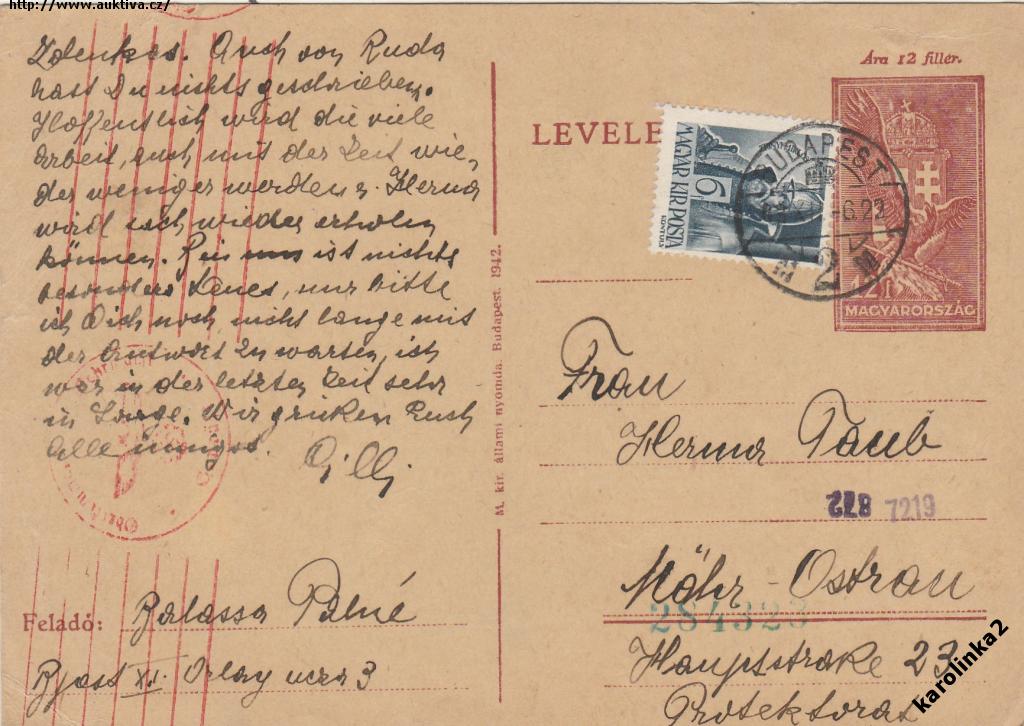 http://www.auktiva.cz/
Zdenkas. Auch von Ruda
hast Du nichts geschrieben.
Hoffentlich wird die viele
Arbeit, auch mit der Zeit wie-
der weniger werden u. Herma
wird sich wieder erholen
können. Bei uns ist nichts
besonders Neues, nur bitte
ich Dich noch, nicht lange mit
der Antwort zu warten, ich
war in der letzten Zeit sehr
in Sorge. Wir grüßen Euch
Alle innigst.
Gilli
Feladó: Balassa Pálné
Bpest XI. Orlay ucca 3
M. kir. állami nyomda. Budapest. 1942.
Ára 12 fillér.
LEVELE
MAGYAR KIR. POSTA
6
BUDAPEST
-6.22
2
MAGYARORSZÁG
Frau
Herma Taub
872 7219
Mähr-Ostrau
284323
Hauptstraße 23
Protektorat
karolinka2